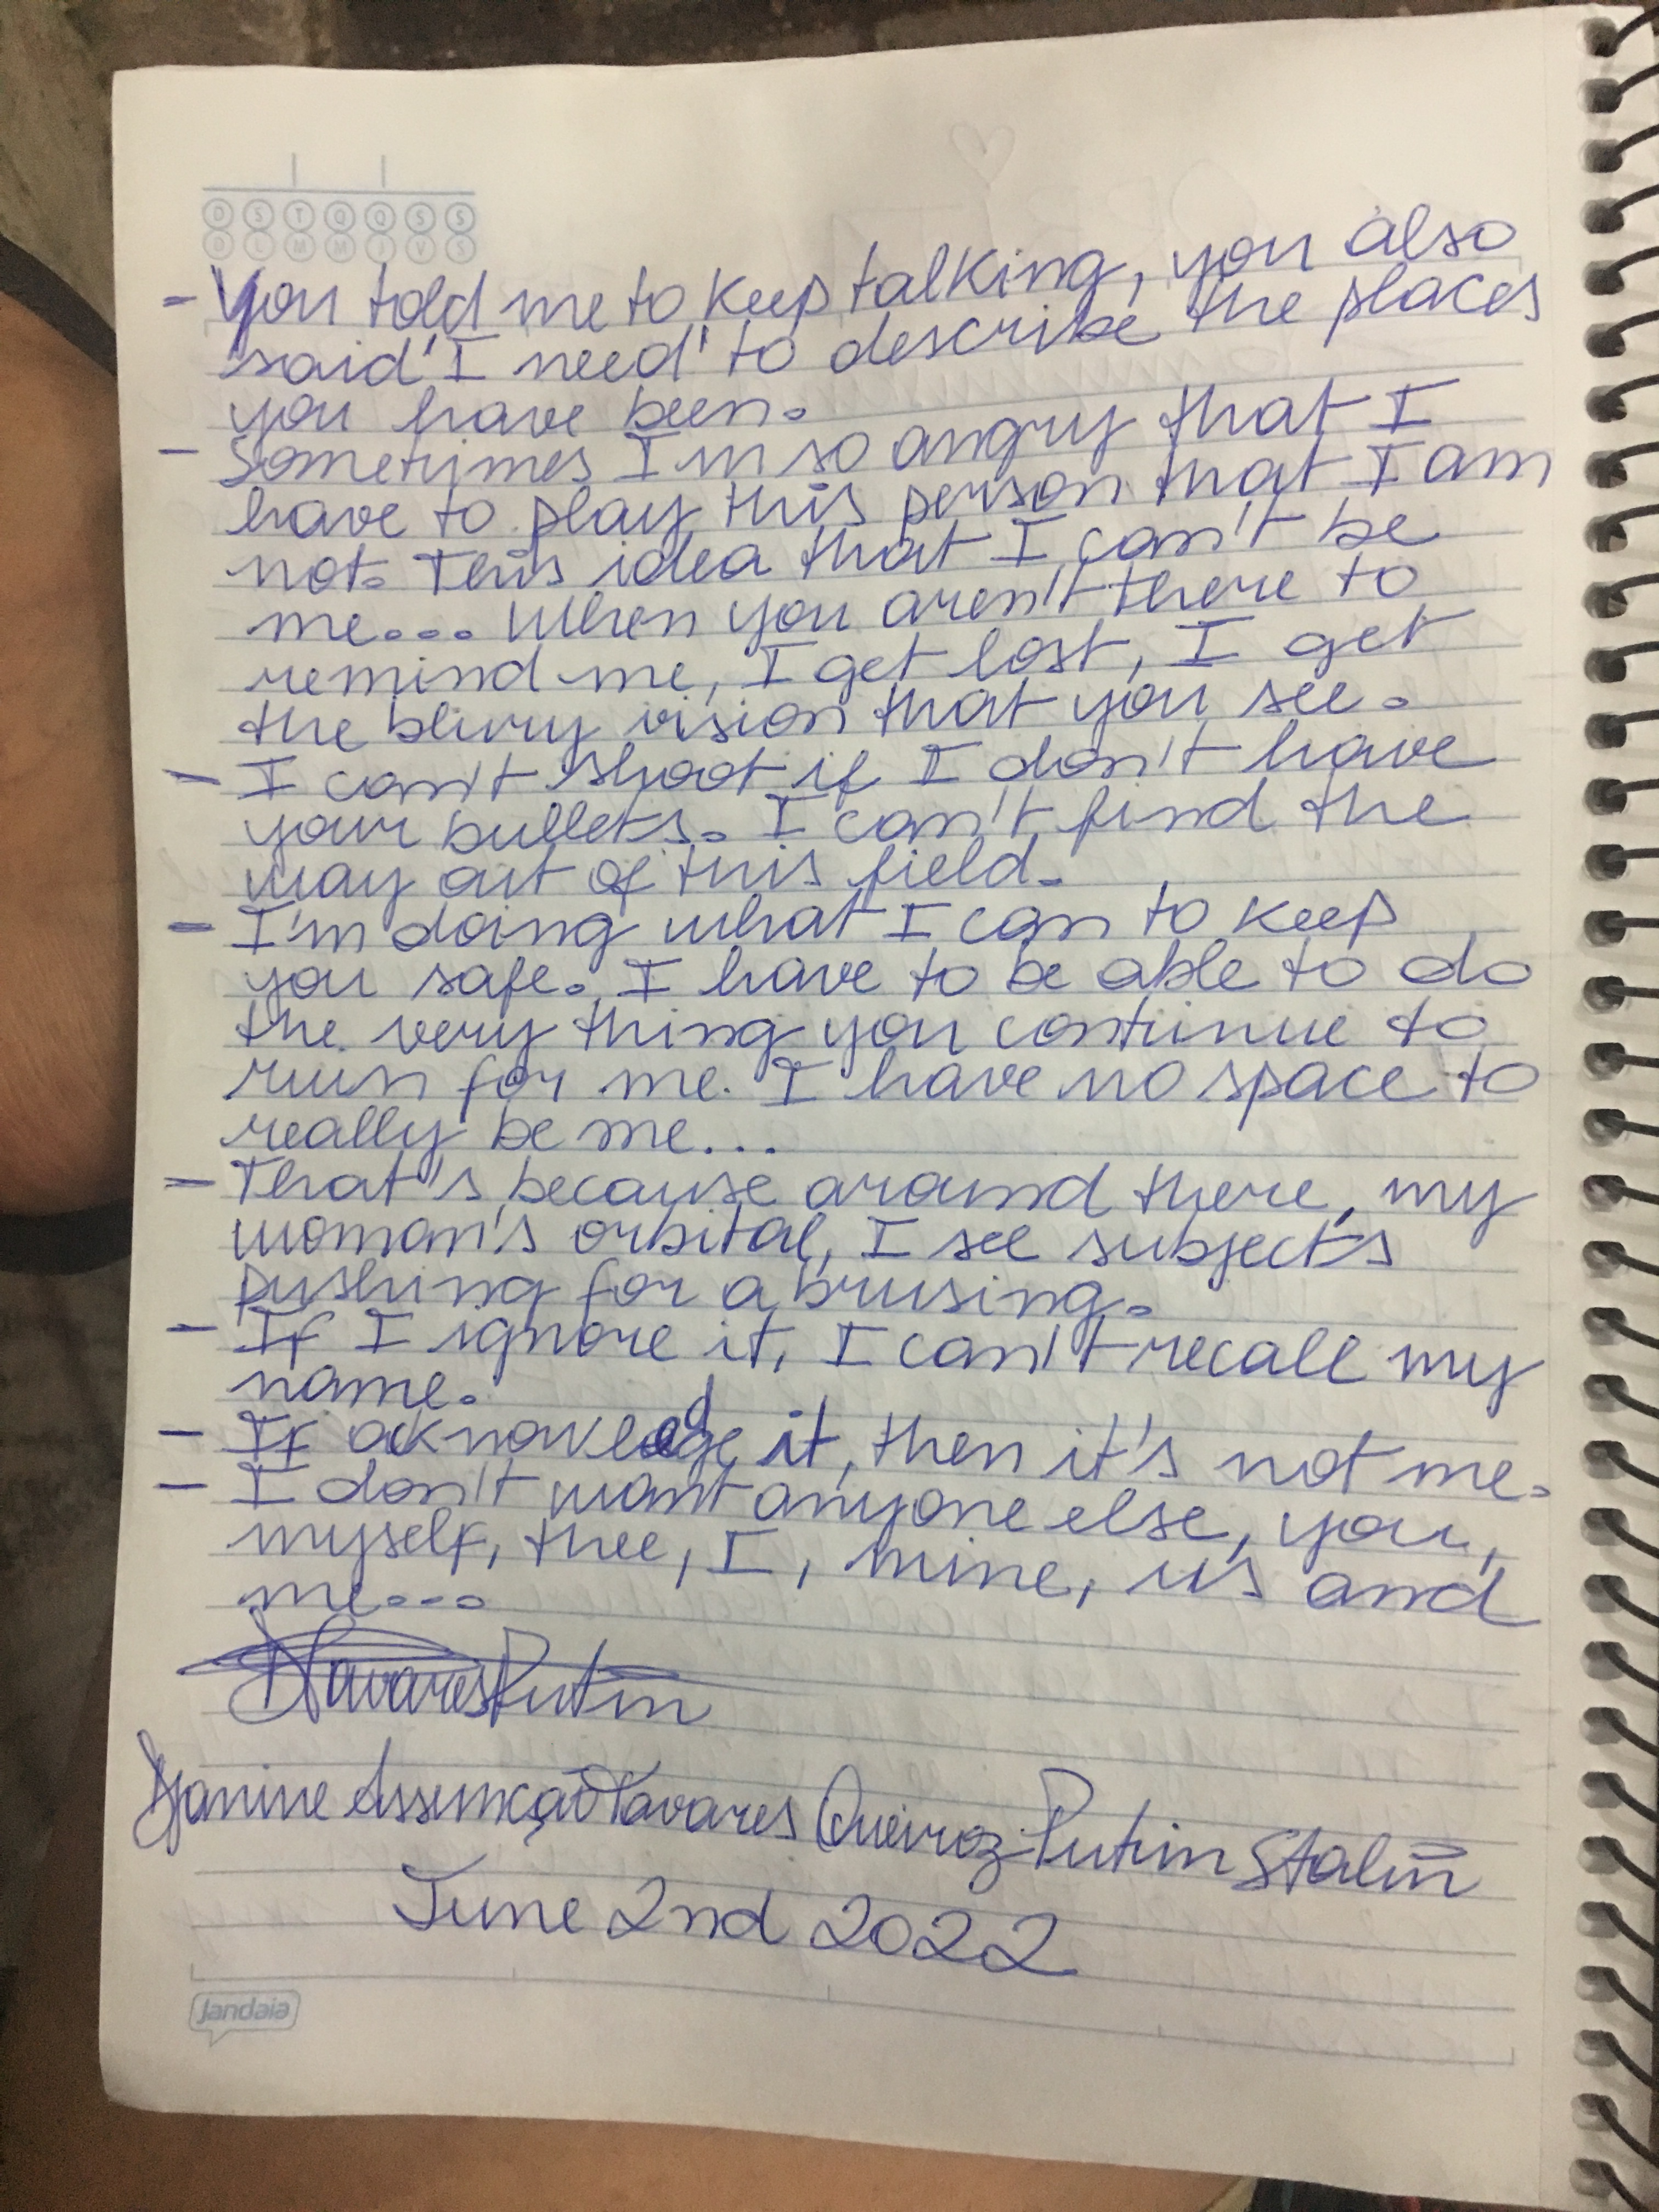 D S T Q Q S S
D L M M J V S
- You told me to keep talking, you also
said I need to describe the places
you have been.
- Sometimes I'm so angry that I
have to play this person that I am
not. This idea that I can't be
me... When you aren't there to
remind me, I get lost, I get
the blurry vision that you see.
- I can't shoot if I don't have
your bullets. I can't find the
way out of this field.
- I'm doing what I can to keep
you safe. I have to be able to do
the very thing you continue to
run for me. I have no space to
really be me...
- That's because around there, my
woman's orbital, I see subjects
pushing for a bruising.
- If I ignore it, I can't recall my
name.
- If aknowledge it, then it's not me.
- I don't want anyone else, you,
myself, thee, I, mine, us and
me...
Tavares Putin
Djanine Assunção Tavares Queiroz Putin Stalin
June 2nd 2022
Jandaia